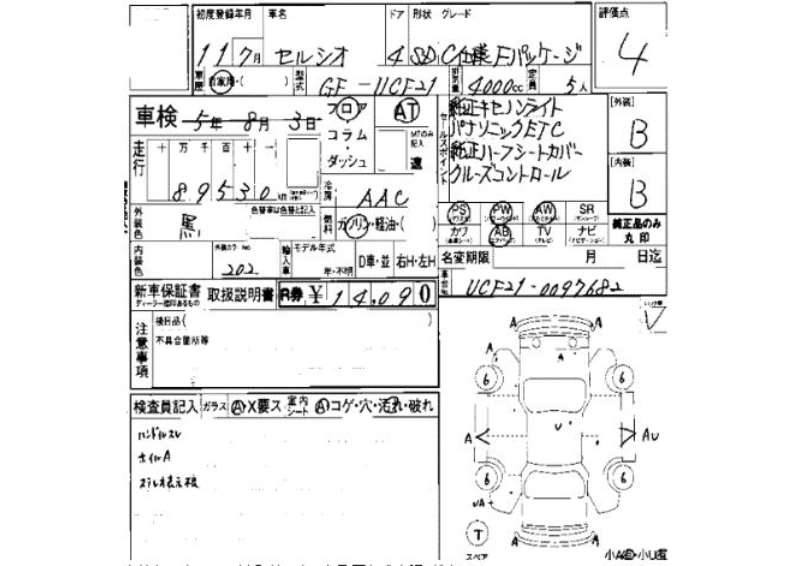 初度登録年月 車名 ドア 形状 グレード 評価点
11 7月 セルシオ 4 SBD C仕様 Fパッケージ 4
車歴 自家用・( ) 型式 GF-UCF21 排気量 4000cc 定員 5人
車検 5年 8月 3日 フロア AT
コラム・ダッシュ MTのみ記入 速
セールスポイント
純正キセノンライト
パナソニックETC
純正ハーフシートカバー
クルーズコントロール
[外装] B
[内装] B
走行 十 万 千 百 十 一
89530 km
冷房 AAC
外装色 黒 色替車は色替と記入 燃料 ガソリン・軽油・( )
PS PW AW SR
カワ AB TV ナビ
純正品のみ丸印
内装色 外装カラーNo. 202 輸入車 モデル年式 年・不明 D車・並 右H・左H
名変期限 月 日迄
新車保証書 取扱説明書 R券 ¥14,090
UCF21-0097682
注意事項
後日品( )
不具合箇所等
検査員記入 ガラス A・X要ス 室内シート A コゲ・穴・汚れ・破れ
ハンドルスレ
ホイルA
A A
A A
6 6
V
A AU
6 6
A
T
スペア
A A
小A適・小U適